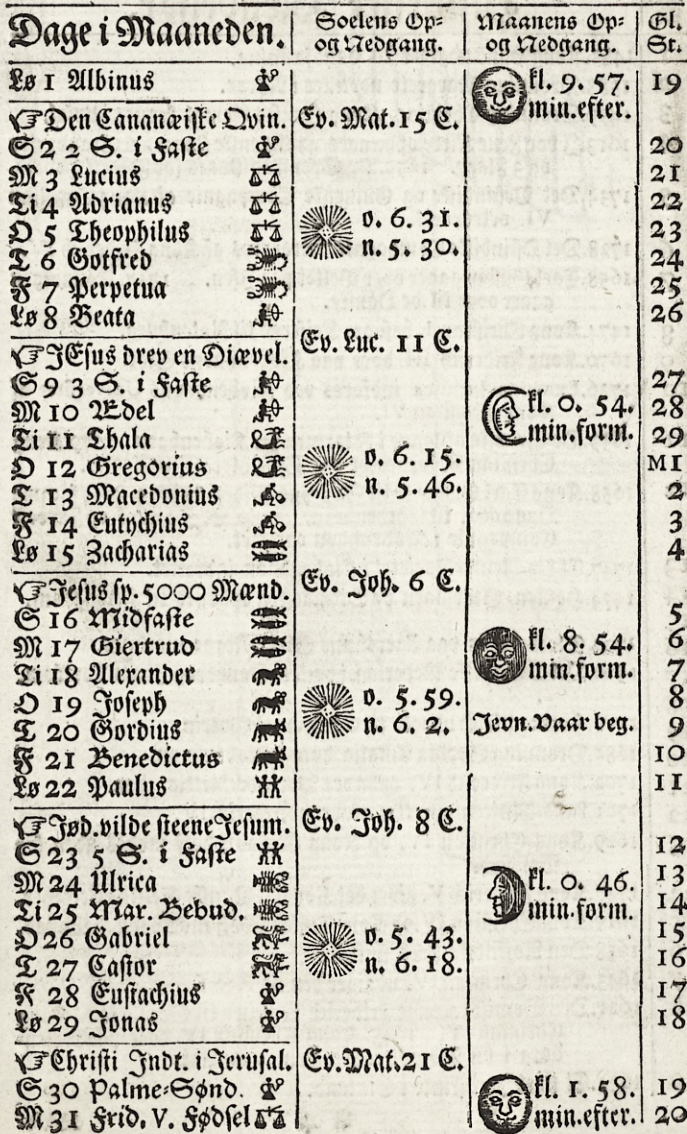 Dage i Maaneden. Soelens Op= Maanens Op= Gl.
og Nedgang. og Nedgang. St.
Lø 1 Albinus kl. 9. 57. 19
min. efter.
☞ Den Cananæiske Qvin. Ev. Mat. 15 C.
S 2 2 S. i Faste 20
M 3 Lucius 21
Ti 4 Adrianus 22
O 5 Theophilus o. 6. 31. 23
T 6 Gotfred n. 5. 30. 24
F 7 Perpetua 25
Lø 8 Beata 26
☞ JEsus drev en Diævel. Ev. Luc. 11 C.
S 9 3 S. i Faste 27
M 10 Ædel kl. 0. 54. 28
Ti 11 Thala min. form. 29
O 12 Gregorius o. 6. 15. M1
T 13 Macedonius n. 5. 46. 2
F 14 Eutychius 3
Lø 15 Zacharias 4
☞ Jesus sp. 5000 Mænd. Ev. Joh. 6 C.
S 16 Midfaste 5
M 17 Giertrud kl. 8. 54. 6
Ti 18 Alexander min. form. 7
O 19 Joseph o. 5. 59. 8
T 20 Gordius n. 6. 2. Jevn. Vaar beg. 9
F 21 Benedictus 10
Lø 22 Paulus 11
☞ Jød. vilde steene Jesum. Ev. Joh. 8 C.
S 23 5 S. i Faste 12
M 24 Ulrica kl. 0. 46. 13
Ti 25 Mar. Bebud. min. form. 14
O 26 Gabriel o. 5. 43. 15
T 27 Castor n. 6. 18. 16
F 28 Eustachius 17
Lø 29 Jonas 18
☞ Christi Indt. i Jerusal. Ev. Mat. 21 C.
S 30 Palme=Sønd. kl. 1. 58. 19
M 31 Frid. V. Fødsel min. efter. 20